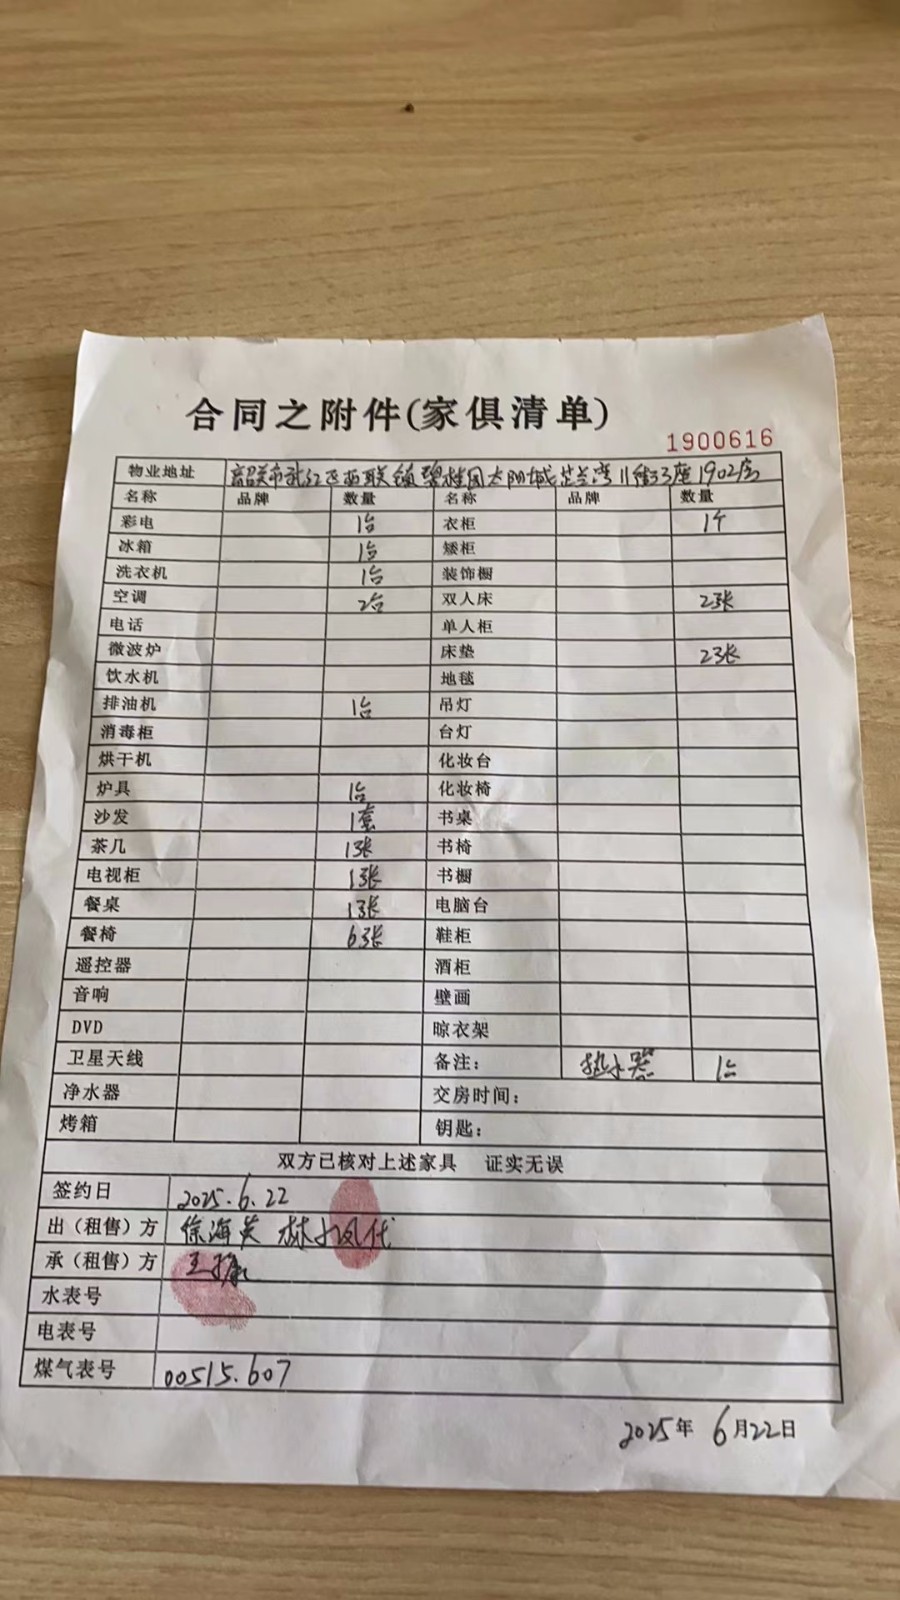 合同之附件(家俱清单)
1900616
物业地址 韶关市武江区西联镇碧桂园太阳城芷兰湾11街33座1902房
名称 品牌 数量 名称 品牌 数量
彩电 1台 衣柜 1个
冰箱 1台 矮柜
洗衣机 1台 装饰橱
空调 2台 双人床 2张
电话 单人柜
微波炉 床垫 2张
饮水机 地毯
排油机 1台 吊灯
消毒柜 台灯
烘干机 化妆台
炉具 1台 化妆椅
沙发 1套 书桌
茶几 1张 书椅
电视柜 1张 书橱
餐桌 1张 电脑台
餐椅 6张 鞋柜
遥控器 酒柜
音响 壁画
DVD 晾衣架
卫星天线 备注: 热水器 1台
净水器 交房时间:
烤箱 钥匙:
双方已核对上述家具 证实无误
签约日 2025.6.22
出（租售）方 徐海英 林 凤代
承（租售）方 王
水表号
电表号
煤气表号 00515.607
2025年 6月22日